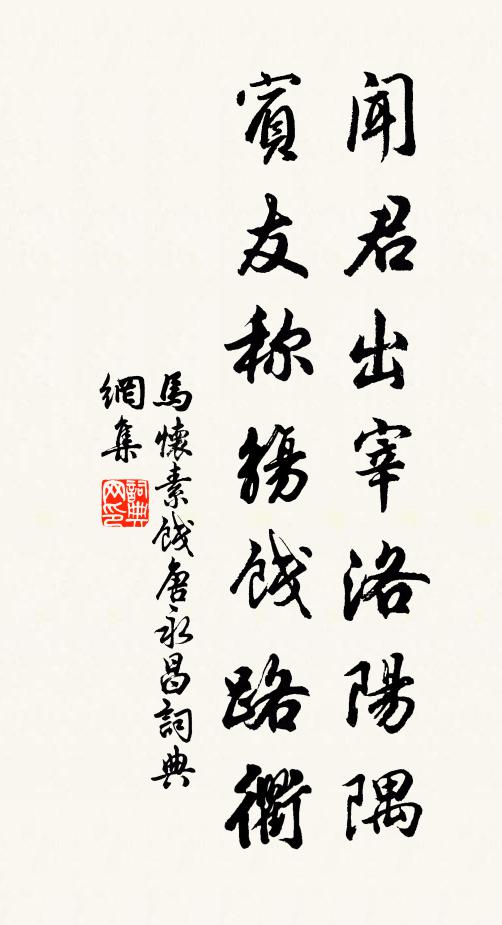 聞君出宰洛陽隅
賓友称觴餞路衢
馬懷素餞唐永昌詞典
網集
詞典
网印